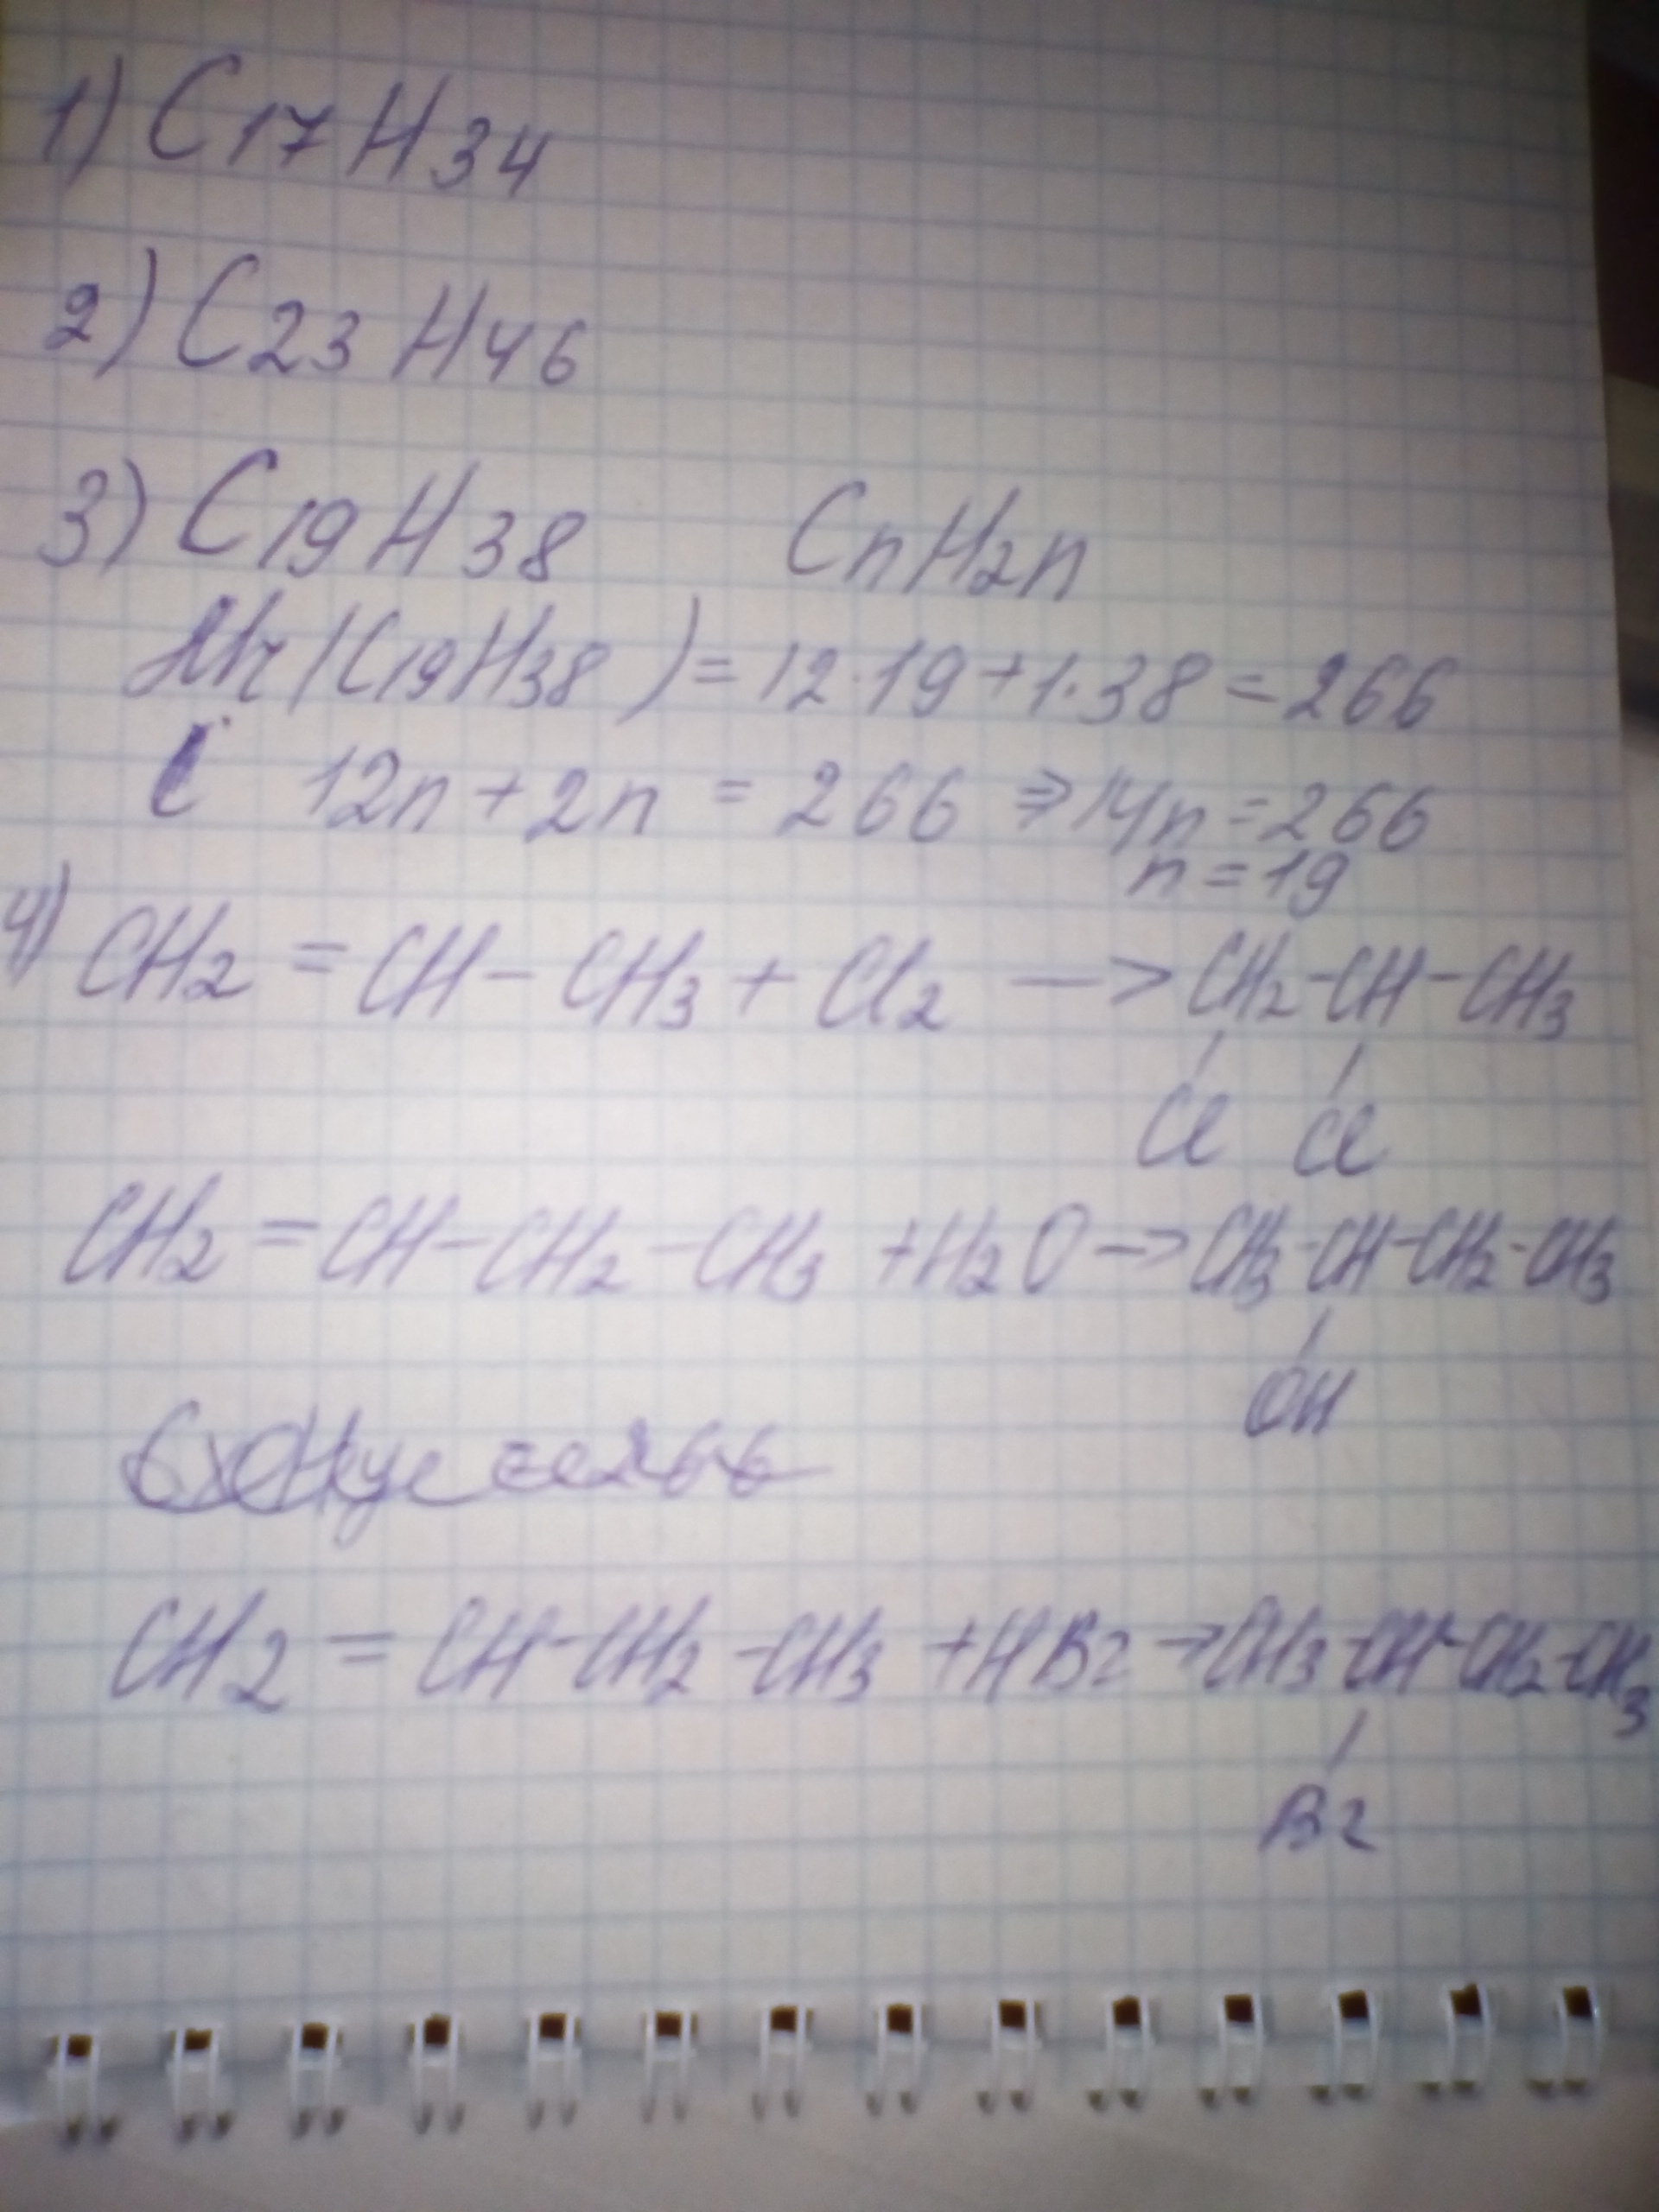 1) C17H34
2) C23H46
3) C19H38 CnH2n
Mr(C19H38) = 12·19+1·38=266
12n+2n = 266 ⇒ 14n=266
n=19
4) CH2=CH-CH3+Cl2 —> CH2-CH-CH3
Cl Cl
CH2=CH-CH2-CH3 +H2O -> CH3-CH-CH2-CH3
OH
CH2=CH-CH2-CH3 +HBr -> CH3-CH-CH2-CH3
Br